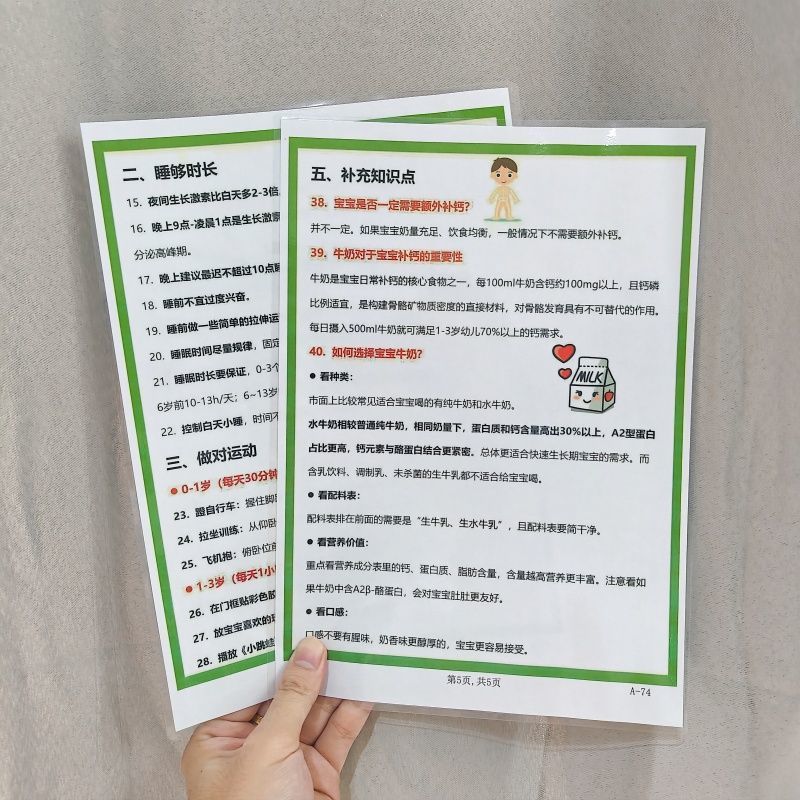 二、睡够时长
15. 夜间生长激素比白天多2-3倍
16. 晚上9点-凌晨1点是生长激素
分泌高峰期。
17. 晚上建议最迟不超过10点睡
18. 睡前不宜过度兴奋。
19. 睡前做一些简单的拉伸运
20. 睡眠时间尽量规律，固定
21. 睡眠时长要保证，0-3个
6岁前10-13h/天；6~13岁
22. 控制白天小睡，时间不
三、做对运动
● 0-1岁（每天30分钟
23. 蹬自行车：握住脚
24. 拉坐训练：从仰卧
25. 飞机抱：俯卧位
● 1-3岁（每天1小
26. 在门框贴彩色
27. 放宝宝喜欢的
28. 播放《小跳蛙
五、补充知识点
38. 宝宝是否一定需要额外补钙？
并不一定。如果宝宝奶量充足、饮食均衡，一般情况下不需要额外补钙。
39. 牛奶对于宝宝补钙的重要性
牛奶是宝宝日常补钙的核心食物之一，每100ml牛奶含钙约100mg以上，且钙磷
比例适宜，是构建骨骼矿物质密度的直接材料，对骨骼发育具有不可替代的作用。
每日摄入500ml牛奶就可满足1-3岁幼儿70%以上的钙需求。
40. 如何选择宝宝牛奶？
● 看种类：
MILK
市面上比较常见适合宝宝喝的有纯牛奶和水牛奶。
水牛奶相较普通纯牛奶，相同奶量下，蛋白质和钙含量高出30%以上，A2型蛋白
占比更高，钙元素与酪蛋白结合更紧密。总体更适合快速生长期宝宝的需求。而
含乳饮料、调制乳、未杀菌的生牛乳都不适合给宝宝喝。
● 看配料表：
配料表排在前面的需要是“生牛乳、生水牛乳”，且配料表要简干净。
● 看营养价值：
重点看营养成分表里的钙、蛋白质、脂肪含量，含量越高营养更丰富。注意看如
果牛奶中含A2β-酪蛋白，会对宝宝肚肚更友好。
● 看口感：
口感不要有腥味，奶香味更醇厚的，宝宝更容易接受。
第5页,共5页
A-74